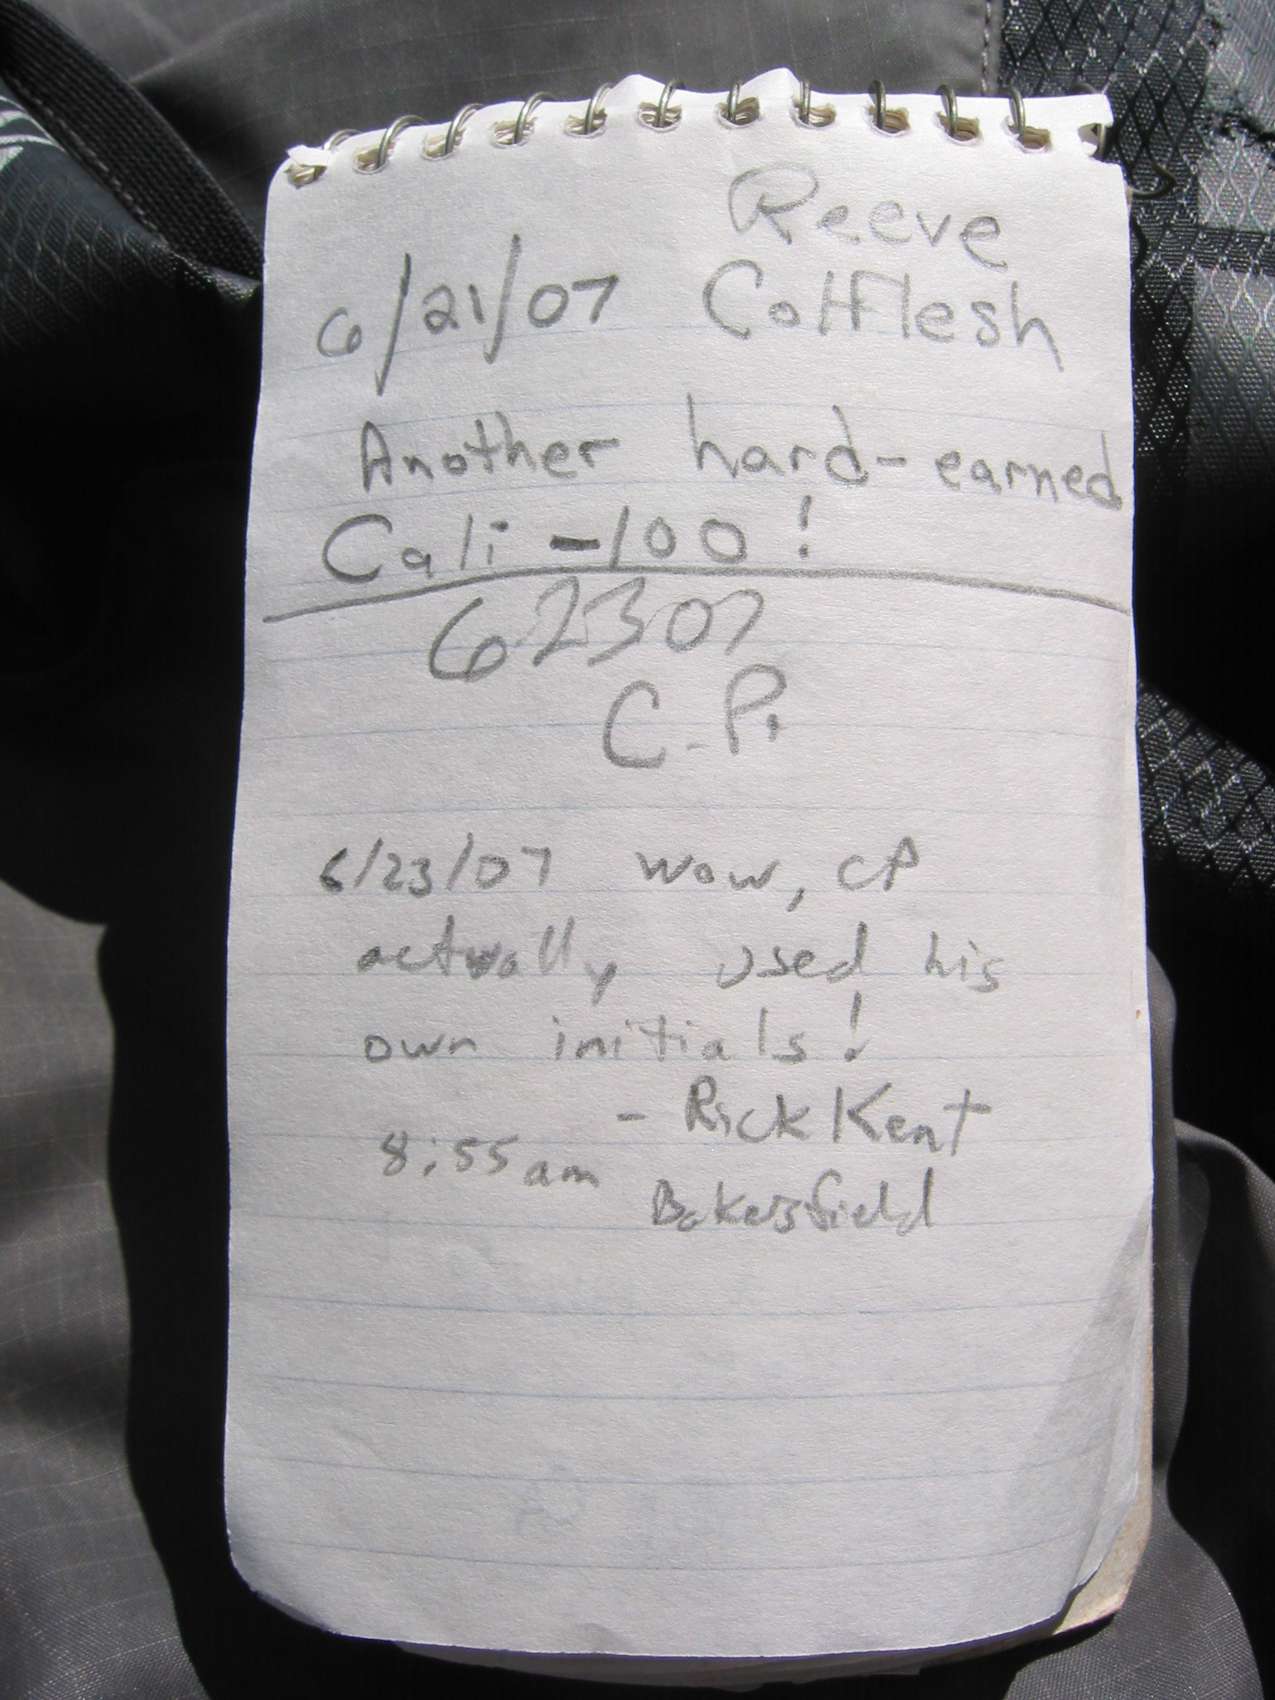 Reeve
6/21/07 Colflesh
Another hard-earned
Cali-100!
62307
C.P.
6/23/07 Wow, CP
actually used his
own initials!
- Rick Kent
8:55 am
Bakersfield